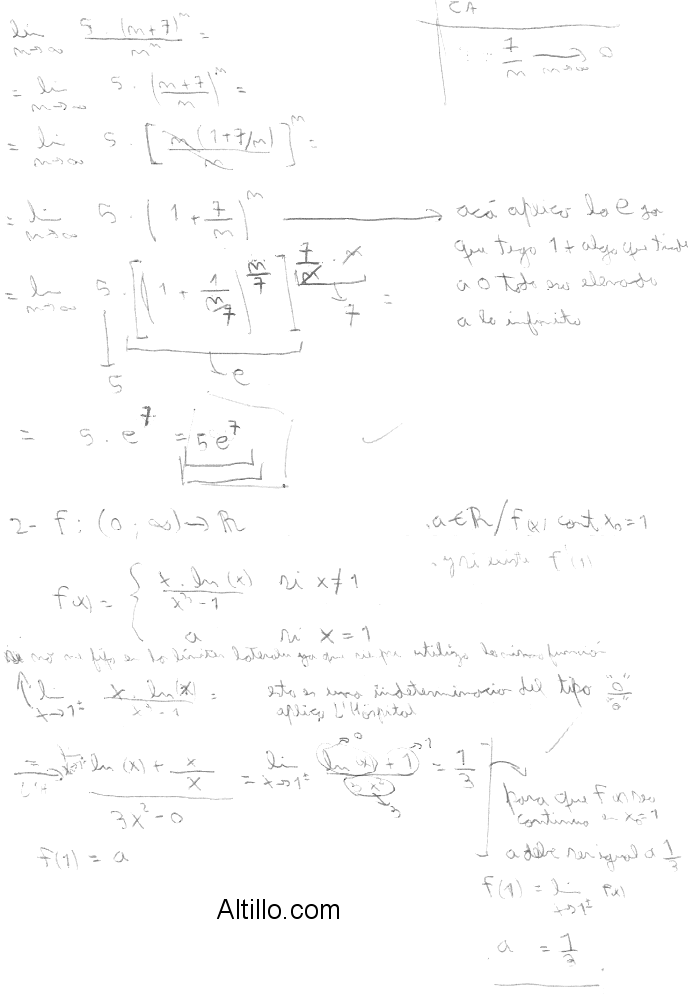 lim n→∞ 5 (n+7)^n / n^n =
CA
7/n → n→∞ 0
= lim n→∞ 5 · ((n+7)/n)^n =
= lim n→∞ 5 · [n(1+7/n)/n]^n =
= lim n→∞ 5 · (1 + 7/n)^n → acá aplico lo e ya
que tengo 1 + algo que tiende
a 0 todo eso elevado
a lo infinito
= lim n→∞ 5 · [(1 + 1/(n/7))^(n/7)]^(7/n · n) =
7
e
5
= 5 · e^7 = 5e^7
2- f: (0; ∞) → R
a ∈ R / f(x) cont x₀=1
y si existe f'(1)
f(x) = { x · ln(x) / x³-1 si x≠1
a si x = 1
no me fijo en los límites laterales ya que utilizo la misma función
lim x→1± x · ln(x) / x³-1 = esto es una indeterminación del tipo "0"/"0"
aplico L'Hôspital
= L'H ln(x) + x/x / 3x²-0 = lim x→1± ln(x) + 1 / 3x² = 1/3
0
1
3
para que f(x) sea
continua en x₀=1
a debe ser igual a 1/3
f(1) = a
f(1) = lim x→1± f(x)
a = 1/3
Altillo.com